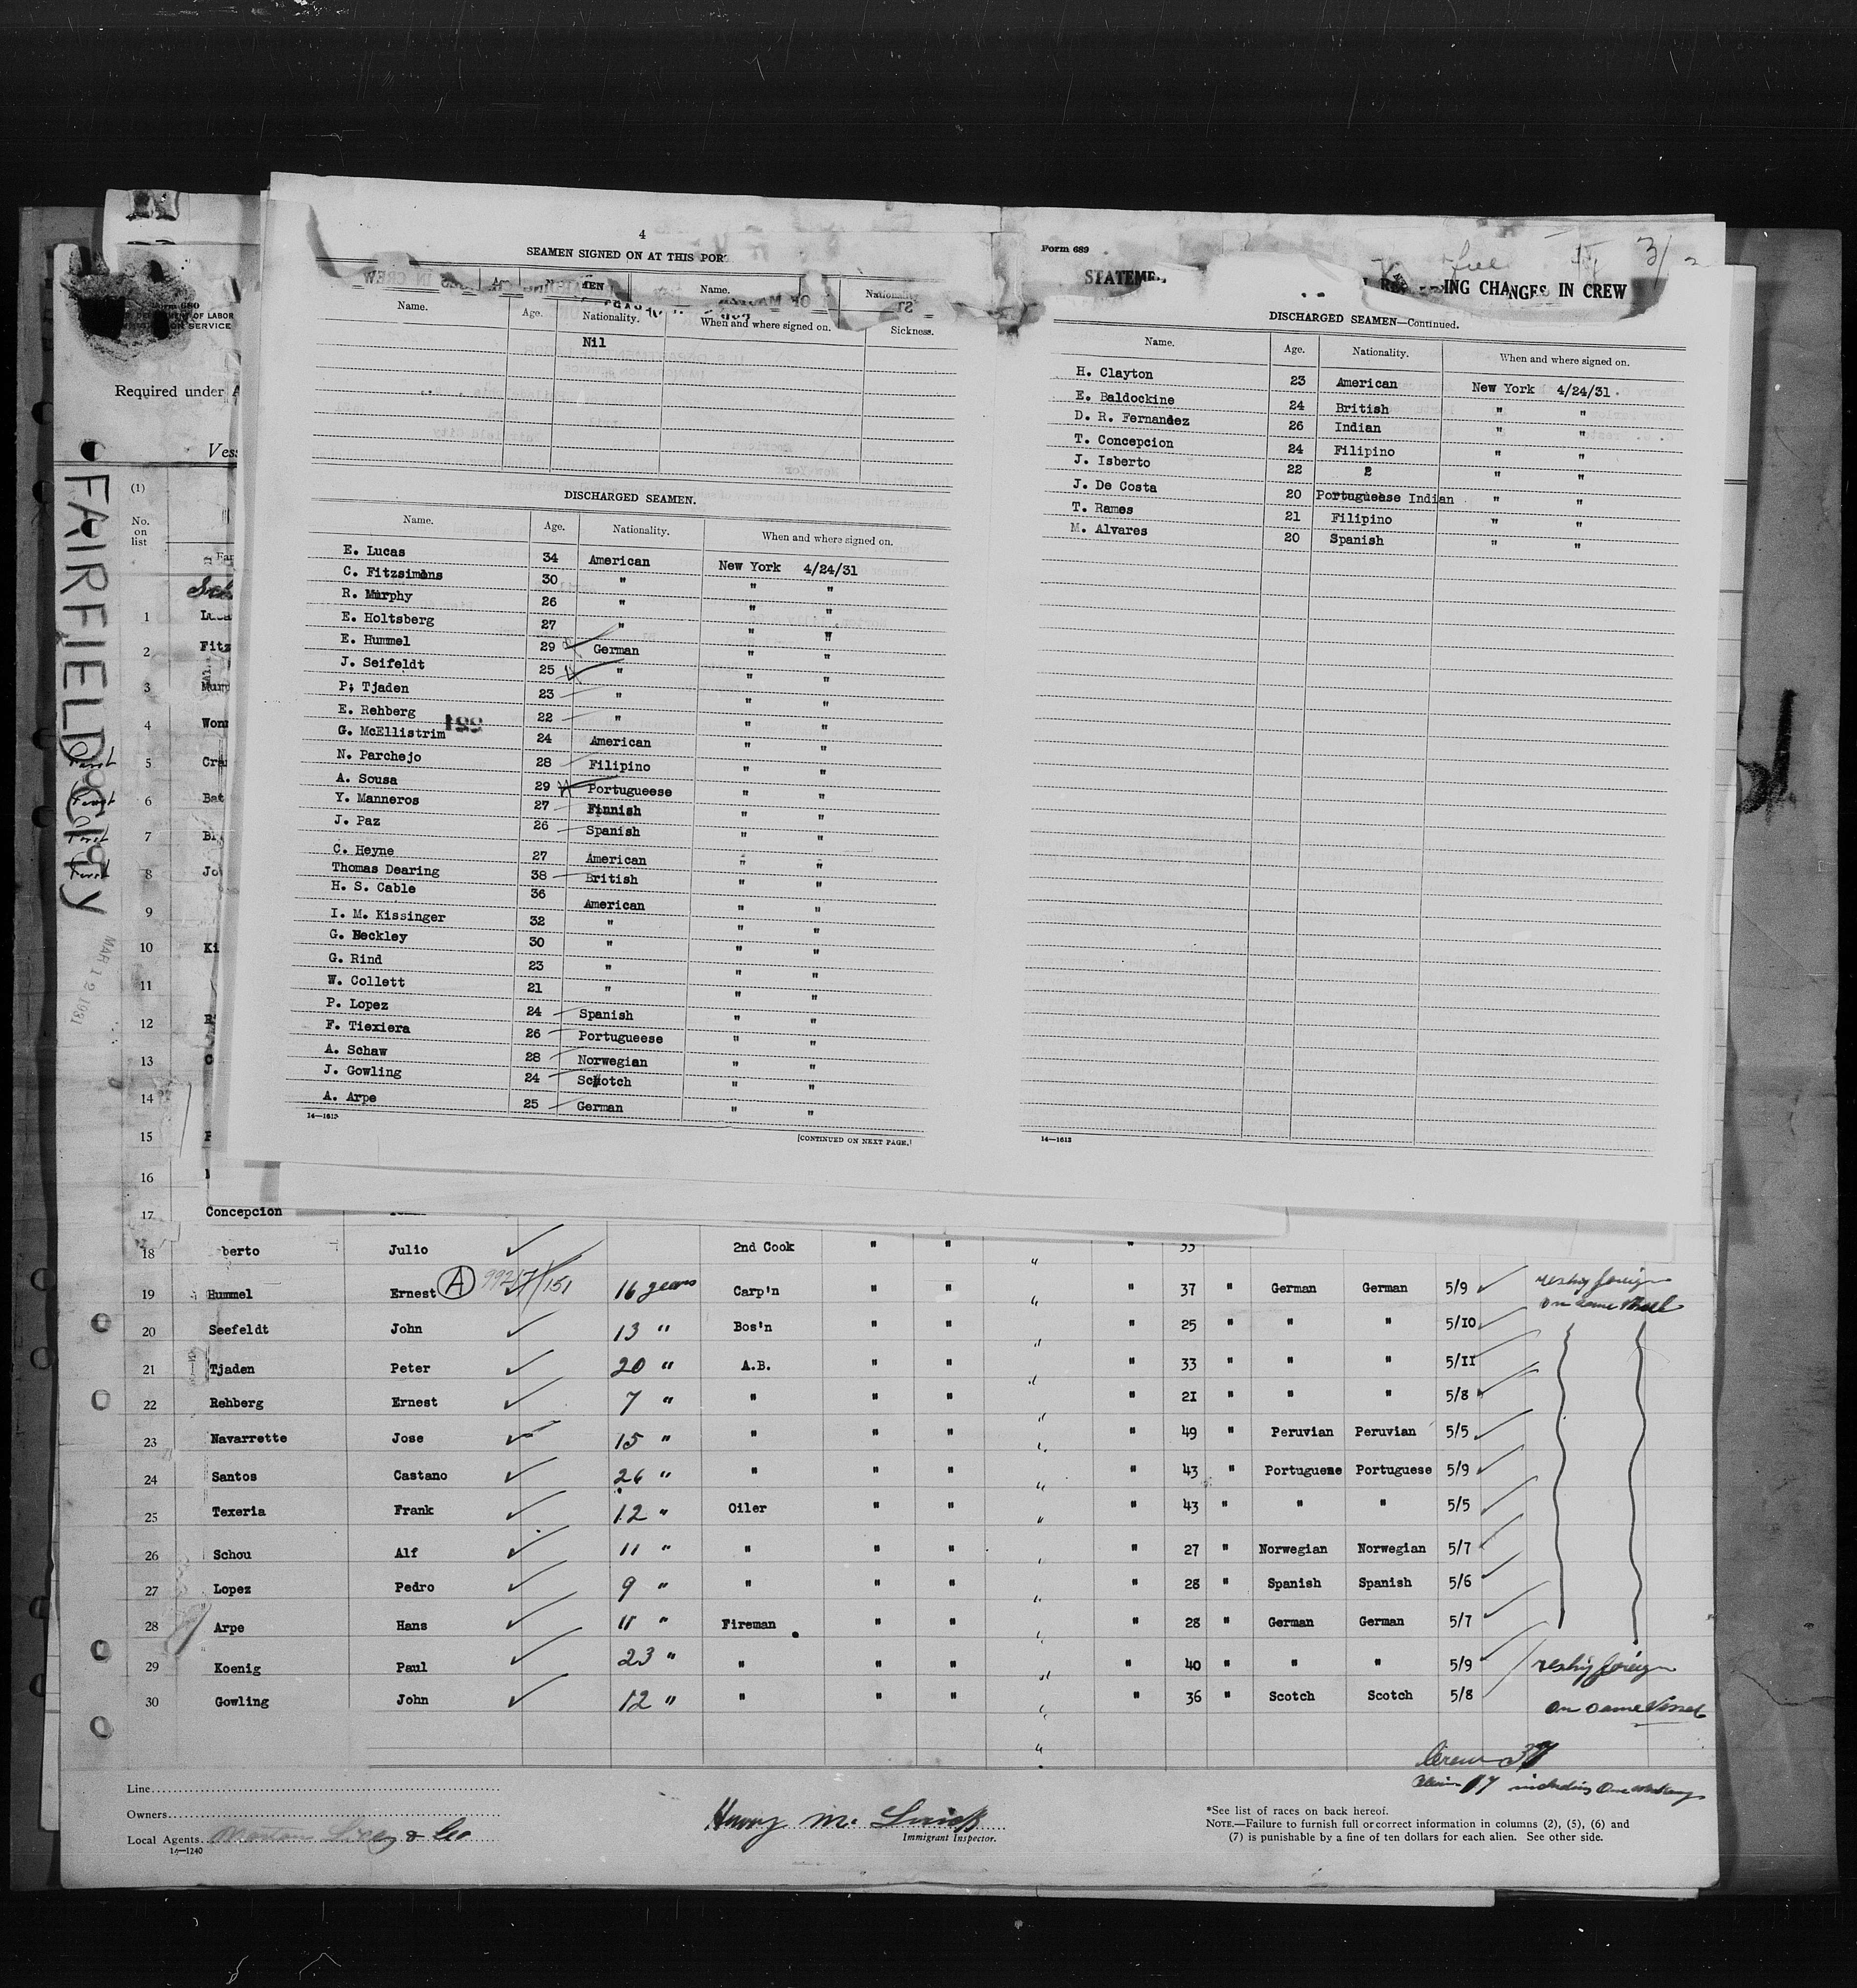 4
SEAMEN SIGNED ON AT THIS POR
Name. Age. Nationality. When and where signed on. Sickness.
Nil
DISCHARGED SEAMEN.
Name. Age. Nationality. When and where signed on.
E. Lucas 34 American New York 4/24/31
C. Fitzsimons 30 " " "
R. Murphy 26 " " "
E. Holtsberg 27 " " "
E. Hummel 29 German " "
J. Seifeldt 25 " " "
P. Tjaden 23 " " "
E. Rehberg 22 " " "
G. McEllistrim 24 American " "
N. Parchejo 28 Filipino " "
A. Sousa 29 Portugueese " "
Y. Manneros 27 Finnish " "
J. Paz 26 Spanish " "
C. Heyne 27 American " "
Thomas Dearing 38 British " "
H. S. Cable 36 American " "
I. M. Kissinger 32 " " "
G. Heckley 30 " " "
G. Rind 23 " " "
W. Collett 21 " " "
P. Lopez 24 Spanish " "
F. Tiexiera 26 Portugueese " "
A. Schaw 28 Norwegian " "
J. Gowling 24 Scotch " "
A. Arpe 25 German " "
14—1613
[CONTINUED ON NEXT PAGE.]
Form 689
STATEME
ING CHANGES IN CREW
DISCHARGED SEAMEN—Continued.
Name. Age. Nationality. When and where signed on.
H. Clayton 23 American New York 4/24/31
E. Baldockine 24 British " "
D. R. Fernandez 26 Indian " "
T. Concepcion 24 Filipino " "
J. Isberto 22 " " "
J. De Costa 20 Portugueese Indian " "
T. Rames 21 Filipino " "
M. Alvares 20 Spanish " "
14—1613
Form 680
OF LABOR
SERVICE
Required under A
Vess
FAIRFIELD City
MAR 12 1931
(1)
No. on list
1
2 Fitz
3
4
5
6 Bat
7
8
9
10 Ki
11
12
13
14
15
16
17 Concepcion
18 berto Julio 2nd Cook " " " " 33
19 Hummel Ernest A 16 years Carp'n " " " " 37 " German German 5/9 reship foreign
on same vessel
20 Seefeldt John 13 " Bos'n " " " " 25 " " " 5/10
21 Tjaden Peter 20 " A.B. " " " " 33 " " " 5/11
22 Rehberg Ernest 7 " " " " " " 21 " " " 5/8
23 Navarrette Jose 15 " " " " " " 49 " Peruvian Peruvian 5/5
24 Santos Castano 26 " " " " " " 43 " Portuguese Portuguese 5/9
25 Texeria Frank 12 " Oiler " " " " 43 " " " 5/5
26 Schou Alf 11 " " " " " " 27 " Norwegian Norwegian 5/7
27 Lopez Pedro 9 " " " " " " 28 " Spanish Spanish 5/6
28 Arpe Hans 11 " Fireman " " " " 28 " German German 5/7
29 Koenig Paul 23 " " " " " " 40 " " " 5/9 reship foreign
30 Gowling John 12 " " " " " " 36 " Scotch Scotch 5/8 on same vessel
Crew 37
17 including one
Line
Owners
Local Agents & Co
14—1240
Henry M.
Immigrant Inspector.
*See list of races on back hereof.
NOTE.—Failure to furnish full or correct information in columns (2), (5), (6) and
(7) is punishable by a fine of ten dollars for each alien. See other side.